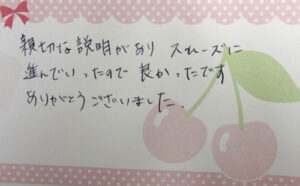 親切な説明があり スムーズに
進んでいったので 良かったです
ありがとうございました.